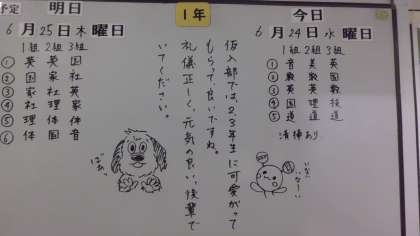 予定
明日
6月25日木曜日
1組 2組 3組
① 英 英 国
② 国 家 社
③ 家 社 英
④ 社 理 家
⑤ 理 体 体
⑥ 体 国 音
1年
今日
6月24日水曜日
1組 2組 3組
① 音 美 英
② 数 数 国
③ 英 英 数
④ 国 理 技
⑤ 道 道 道
清掃あり
仮入部では、2、3年生に可愛がって
もらって、良いですね。
礼儀正しく、元気の良い、後輩で
いてください。
ばぁ。